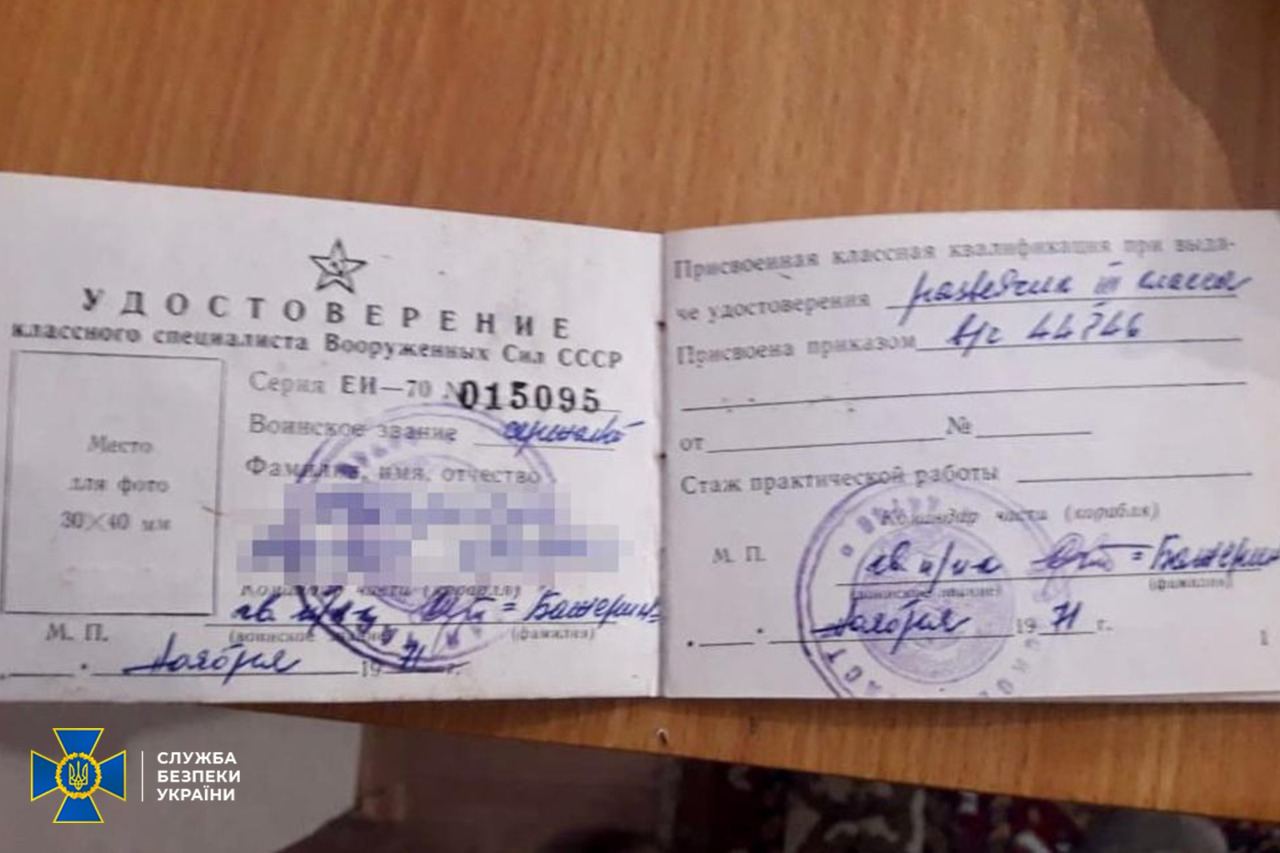 УДОСТОВЕРЕНИЕ
классного специалиста Вооруженных Сил СССР
Серия ЕИ—70 № 015095
Воинское звание
Фамилия, имя, отчество
Место
для фото
30×40 мм
Командир части (корабля)
гв
(воинское звание) (фамилия)
М. П.
ноября 1971 г.
Присвоенная классная квалификация при выда-
че удостоверения разведчик III класса
Присвоена приказом в/ч 44746
от № 
Стаж практической работы
Командир части (корабля)
М. П. гв
(воинское звание) (фамилия)
ноября 1971 г.
1
СЛУЖБА
БЕЗПЕКИ
УКРАЇНИ